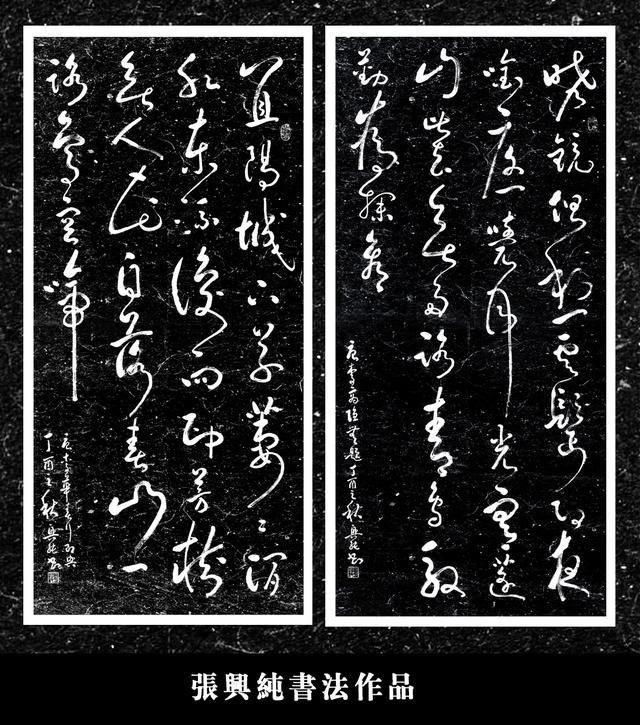 曉鏡但愁雲鬢改夜
吟應覺月光寒蓬
山此去無多路青鳥殷
勤為探看
唐李商隱無題丁酉之秋興純書
宜陽城下草萋萋澗
水東流復向西芳樹
無人花自落春山一
路鳥空啼
唐李華春行寄興
丁酉之秋興純書
張興純書法作品